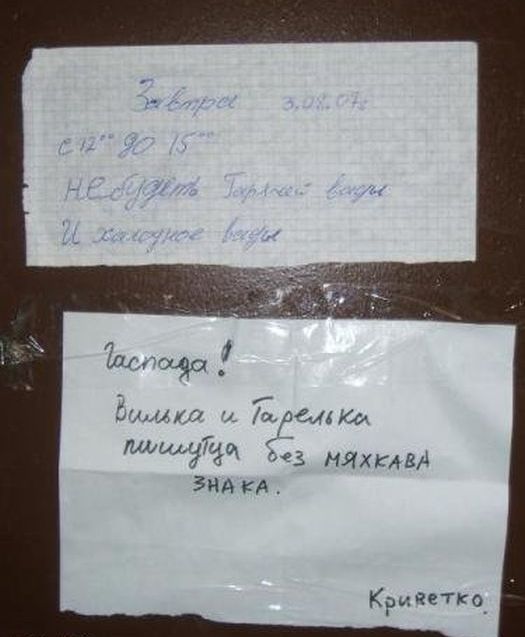 Завтра 3.08.07г
с 12⁰⁰ до 15⁰⁰
не будеть Гарячей вады
И халодное вады
Гаспада!
Вилька и Тарелька
пишутца без мяхкава
знака.
Криветко.